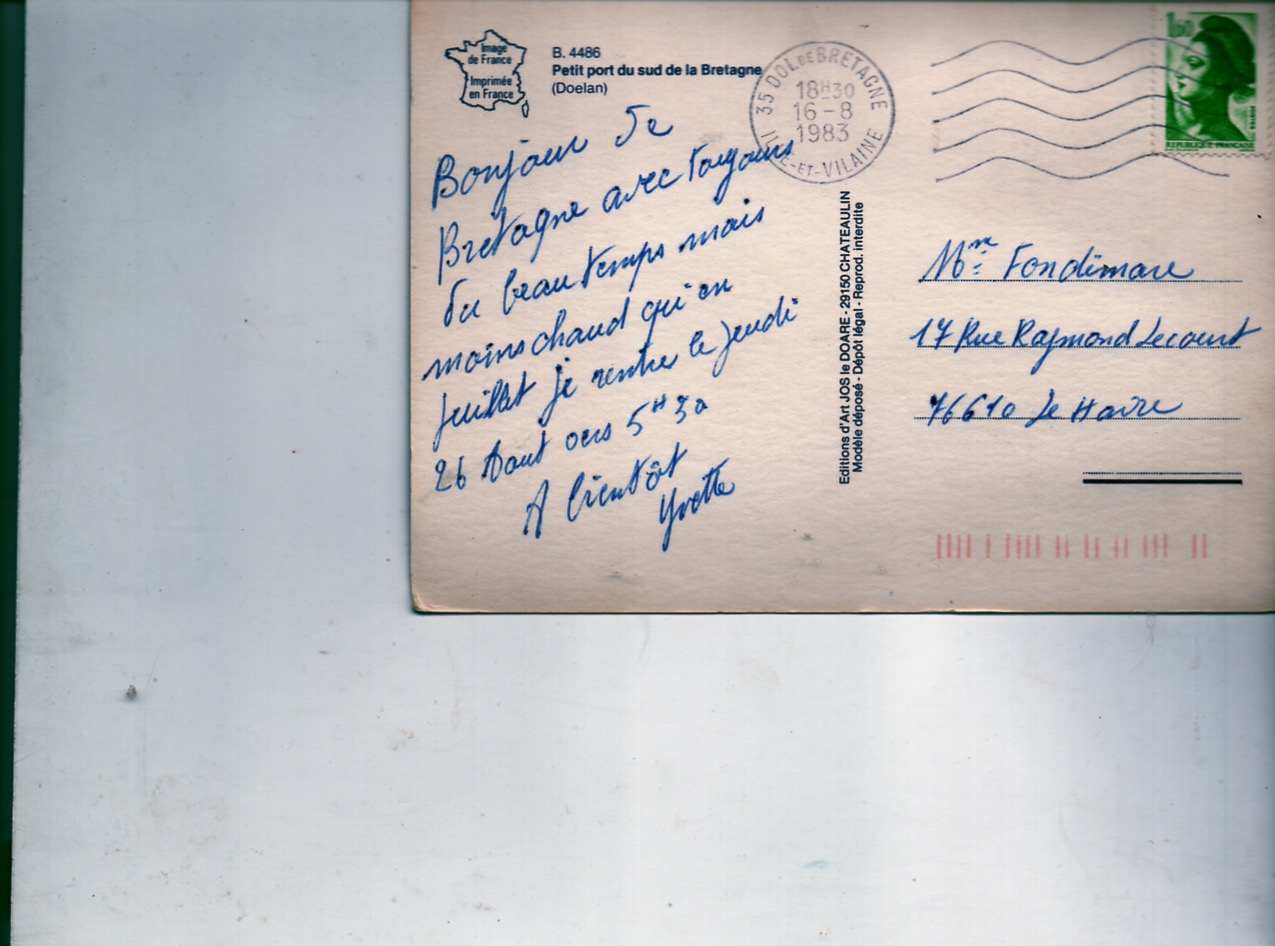 Image
de France
Imprimée
en France
B. 4486
Petit port du sud de la Bretagne
(Doelan)
Bonjour de
Bretagne avec toujours
du beau temps mais
moins chaud qu'en
Juillet je rentre le Jeudi
26 Aout vers 5H30
A bientôt
Yvette
Editions d'Art JOS le DOARE - 29150 CHATEAULIN
Modèle déposé - Dépôt légal - Reprod. interdite
35 DOL DE BRETAGNE
18H30
16-8
1983
ILLE-ET-VILAINE
1,60
POSTES
REPUBLIQUE FRANÇAISE
Mme Fondimare
17 Rue Raymond Lecourt
76610 Le Havre